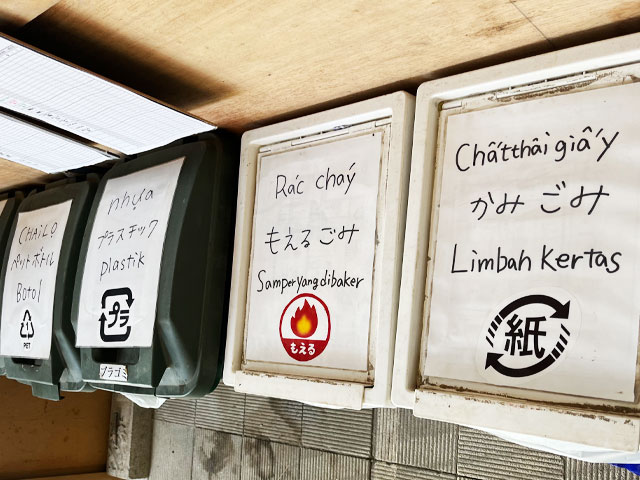 CHAI LO
ペットボトル
Botol
PET
nhựa
プラスチック
plastik
プラ
プラゴミ
Rác cháy
もえるごみ
Samper yang dibaker
もえる
Chấtthải giấy
かみ ごみ
Limbah kertas
紙